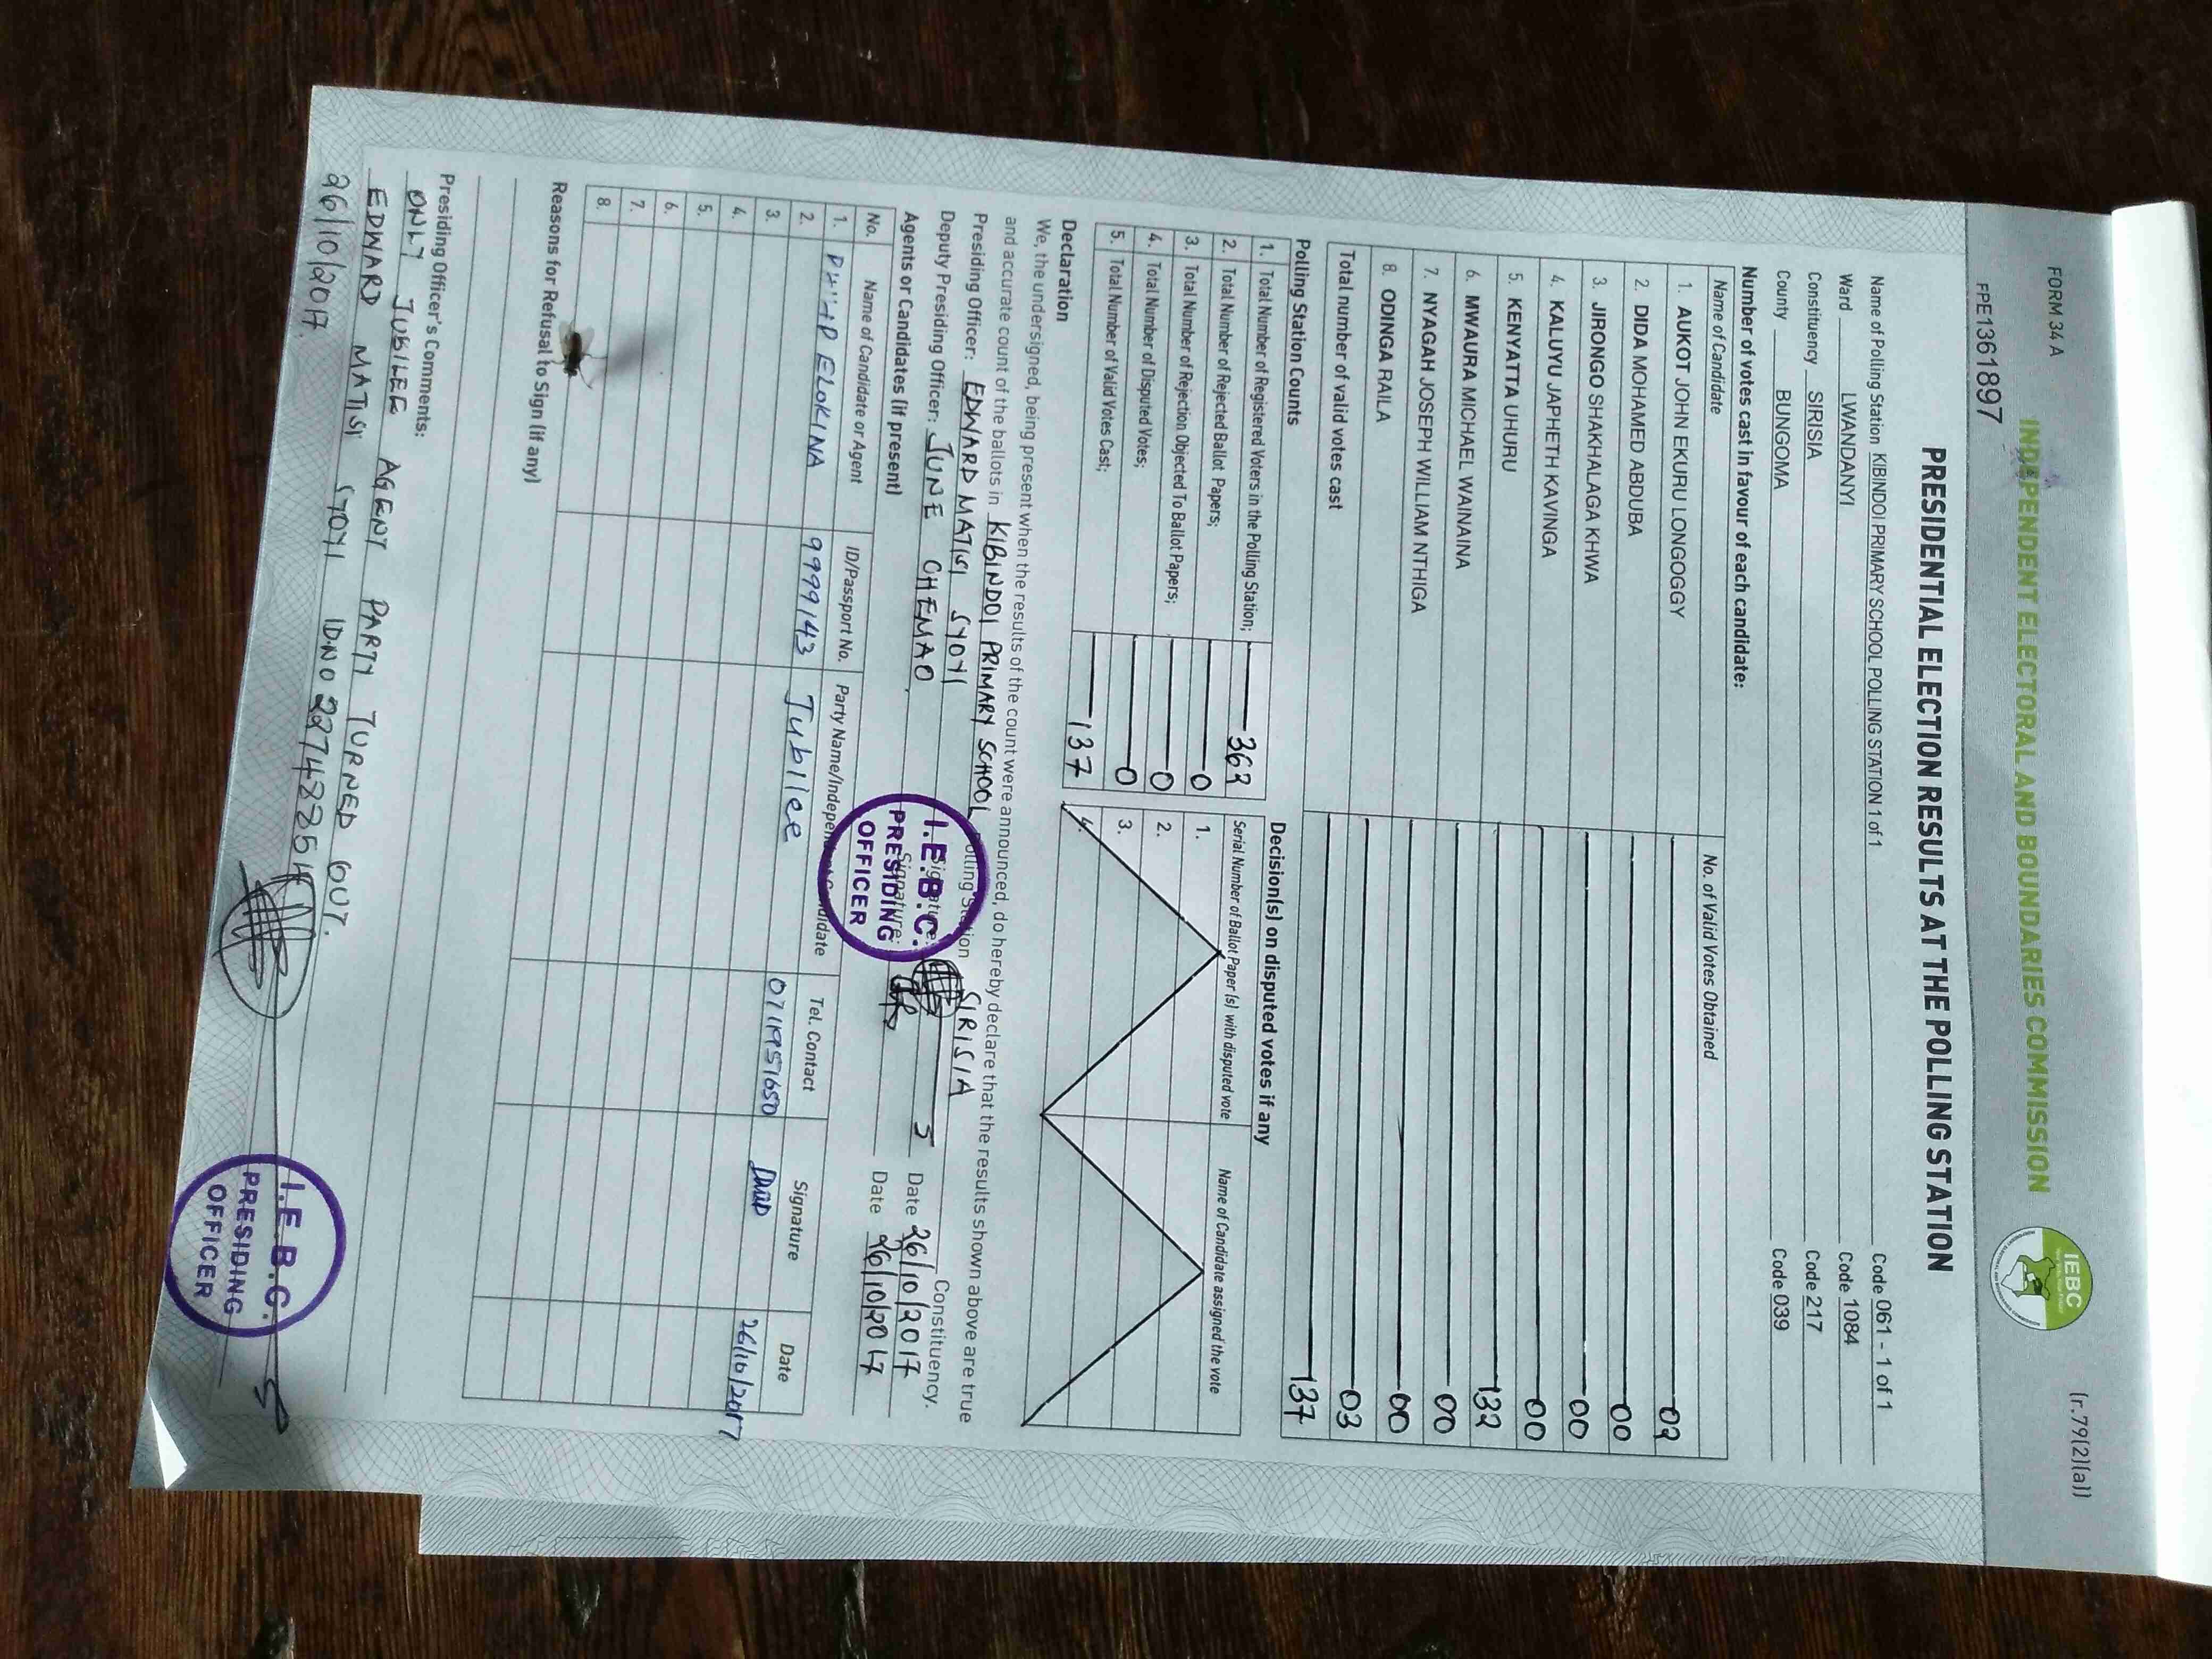 FORM 34 A
(r.79(2)(a))
INDEPENDENT ELECTORAL AND BOUNDARIES COMMISSION
IEBC
FPE1361897
PRESIDENTIAL ELECTION RESULTS AT THE POLLING STATION
Name of Polling Station KIBINDOI PRIMARY SCHOOL POLLING STATION 1 of 1 Code 061 - 1 of 1
Ward LWANDANYI Code 1084
Constituency SIRISIA Code 217
County BUNGOMA Code 039
Number of votes cast in favour of each candidate:
Name of Candidate No. of Valid Votes Obtained
1. AUKOT JOHN EKURU LONGOGGY 02
2. DIDA MOHAMED ABDUBA 00
3. JIRONGO SHAKHALAGA KHWA 00
4. KALUYU JAPHETH KAVINGA 00
5. KENYATTA UHURU 132
6. MWAURA MICHAEL WAINAINA 00
7. NYAGAH JOSEPH WILLIAM NTHIGA 00
8. ODINGA RAILA 03
Total number of valid votes cast 137
Polling Station Counts
1. Total Number of Registered Voters in the Polling Station; 363
2. Total Number of Rejected Ballot Papers; 0
3. Total Number of Rejection Objected To Ballot Papers; 0
4. Total Number of Disputed Votes; 0
5. Total Number of Valid Votes Cast; 137
Decision(s) on disputed votes if any
Serial Number of Ballot Paper (s) with disputed vote Name of Candidate assigned the vote
1.
2.
3.
4.
Declaration
We, the undersigned, being present when the results of the count were announced, do hereby declare that the results shown above are true
and accurate count of the ballots in KIBINDOI PRIMARY SCHOOL Polling Station SIRISIA Constituency.
Presiding Officer: EDWARD MATISI SYOYI Signature: Date 26/10/2017
Deputy Presiding Officer: JUNE CHEMAO Signature: Date 26/10/2017
I.E.B.C.
PRESIDING
OFFICER
Agents or Candidates (if present)
No. Name of Candidate or Agent ID/Passport No. Party Name/Independent Candidate Tel. Contact Signature Date
1. ELOKINA 9999143 Jubilee 0711951650 26/10/2017
2.
3.
4.
5.
6.
7.
8.
Reasons for Refusal to Sign (if any)
Presiding Officer's Comments:
ONLY JUBILEE AGENT PARTY TURNED OUT.
EDWARD MATISI SYOYI ID.NO
26/10/2017.
I.E.B.C.
PRESIDING
OFFICER